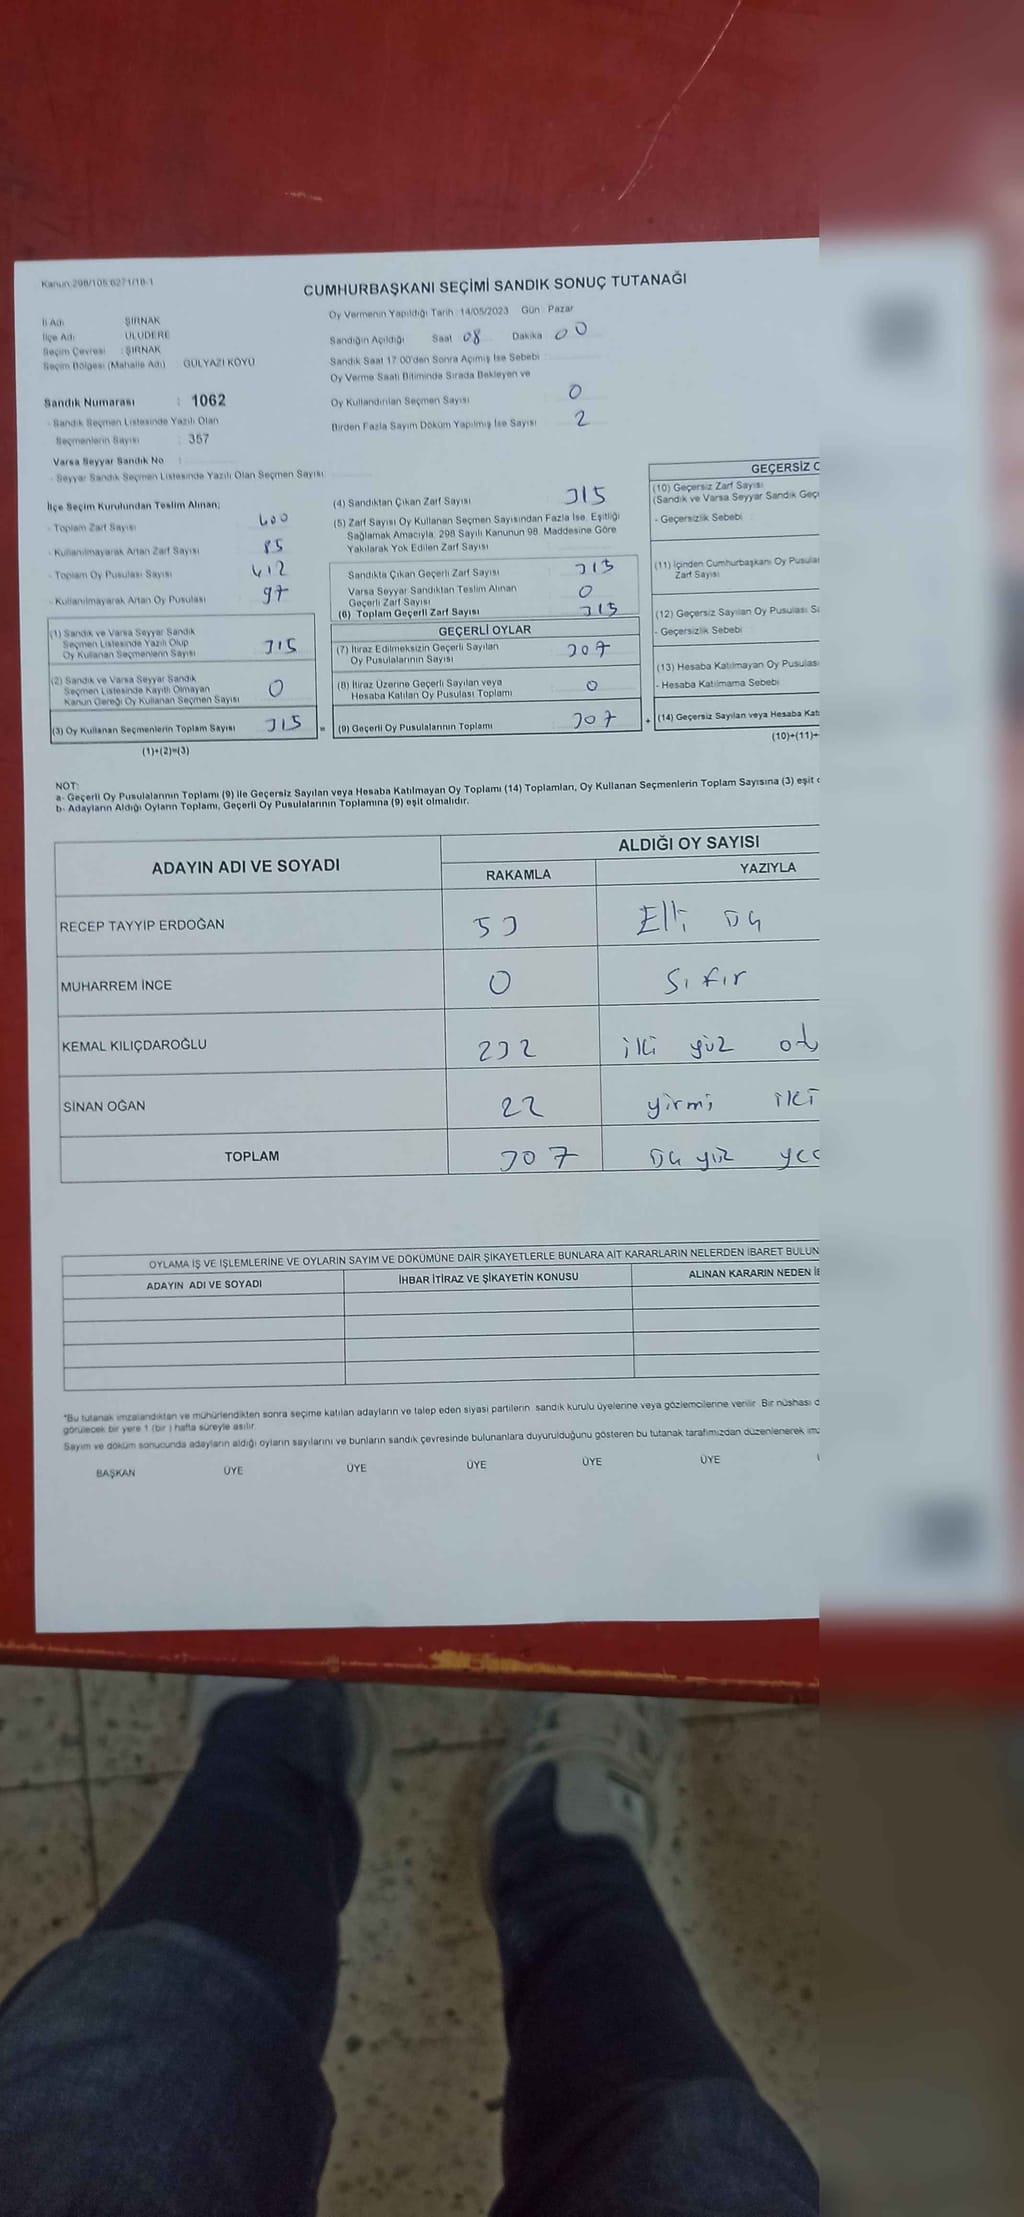 Kanun:298/105:6271/18-1
CUMHURBAŞKANI SEÇİMİ SANDIK SONUÇ TUTANAĞI
İl Adı : ŞIRNAK
İlçe Adı : ULUDERE
Seçim Çevresi : ŞIRNAK
Seçim Bölgesi (Mahalle Adı) : GÜLYAZI KÖYÜ
Oy Vermenin Yapıldığı Tarih : 14/05/2023 Gün : Pazar
Sandığın Açıldığı Saat 08 Dakika 00
Sandık Saat 17:00'den Sonra Açımış İse Sebebi :
Oy Verme Saati Bitiminde Sırada Bekleyen ve
Oy Kullandırılan Seçmen Sayısı 0
Birden Fazla Sayım Döküm Yapılmış İse Sayısı 2
Sandık Numarası : 1062
- Sandık Seçmen Listesinde Yazılı Olan
Seçmenlerin Sayısı : 357
Varsa Seyyar Sandık No :
- Seyyar Sandık Seçmen Listesinde Yazılı Olan Seçmen Sayısı:
İlçe Seçim Kurulundan Teslim Alınan;
- Toplam Zarf Sayısı 400
- Kullanılmayarak Artan Zarf Sayısı 85
- Toplam Oy Pusulası Sayısı 412
- Kullanılmayarak Artan Oy Pusulası 97
(1) Sandık ve Varsa Seyyar Sandık
Seçmen Listesinde Yazılı Olup
Oy Kullanan Seçmenlerin Sayısı 315
(2) Sandık ve Varsa Seyyar Sandık
Seçmen Listesinde Kayıtlı Olmayan
Kanun Gereği Oy Kullanan Seçmen Sayısı 0
(3) Oy Kullanan Seçmenlerin Toplam Sayısı 315 =
(1)+(2)=(3)
(4) Sandıktan Çıkan Zarf Sayısı 315
(5) Zarf Sayısı Oy Kullanan Seçmen Sayısından Fazla İse, Eşitliği
Sağlamak Amacıyla, 298 Sayılı Kanunun 98. Maddesine Göre
Yakılarak Yok Edilen Zarf Sayısı
Sandıkta Çıkan Geçerli Zarf Sayısı 315
Varsa Seyyar Sandıktan Teslim Alınan
Geçerli Zarf Sayısı 0
(6) Toplam Geçerli Zarf Sayısı 315
GEÇERLİ OYLAR
(7) İtiraz Edilmeksizin Geçerli Sayılan
Oy Pusulalarının Sayısı 307
(8) İtiraz Üzerine Geçerli Sayılan veya
Hesaba Katılan Oy Pusulası Toplamı 0
(9) Geçerli Oy Pusulalarının Toplamı 307 +
GEÇERSİZ
(10) Geçersiz Zarf Sayısı
(Sandık ve Varsa Seyyar Sandık
- Geçersizlik Sebebi
(11) İçinden Cumhurbaşkanı Oy
Zarf Sayısı
(12) Geçersiz Sayılan Oy Pusulası
- Geçersizlik Sebebi
(13) Hesaba Katılmayan Oy
- Hesaba Katılmama Sebebi
(14) Geçersiz Sayılan veya Hesaba
(10)+(11)+
NOT:
a- Geçerli Oy Pusulalarının Toplamı (9) ile Geçersiz Sayılan veya Hesaba Katılmayan Oy Toplamı (14) Toplamları, Oy Kullanan Seçmenlerin Toplam Sayısına (3) eşit
b- Adayların Aldığı Oyların Toplamı, Geçerli Oy Pusulalarının Toplamına (9) eşit olmalıdır.
ADAYIN ADI VE SOYADI ALDIĞI OY SAYISI
RAKAMLA YAZIYLA
RECEP TAYYİP ERDOĞAN 53 Elli üç
MUHARREM İNCE 0 Sıfır
KEMAL KILIÇDAROĞLU 232 iki yüz
SİNAN OĞAN 22 yirmi iki
TOPLAM 307 üç yüz
OYLAMA İŞ VE İŞLEMLERİNE VE OYLARIN SAYIM VE DÖKÜMÜNE DAİR ŞİKAYETLERLE BUNLARA AİT KARARLARIN NELERDEN İBARET
ADAYIN ADI VE SOYADI İHBAR İTİRAZ VE ŞİKAYETİN KONUSU ALINAN KARARIN NEDEN
*Bu tutanak imzalandıktan ve mühürlendikten sonra seçime katılan adayların ve talep eden siyasi partilerin sandık kurulu üyelerine veya gözlemcilerine verilir. Bir nüshası
görülecek bir yere 1 (bir ) hafta süreyle asılır.
Sayım ve döküm sonucunda adayların aldığı oyların sayılarını ve bunların sandık çevresinde bulunanlara duyurulduğunu gösteren bu tutanak tarafımızdan düzenlenerek
BAŞKAN ÜYE ÜYE ÜYE ÜYE ÜYE